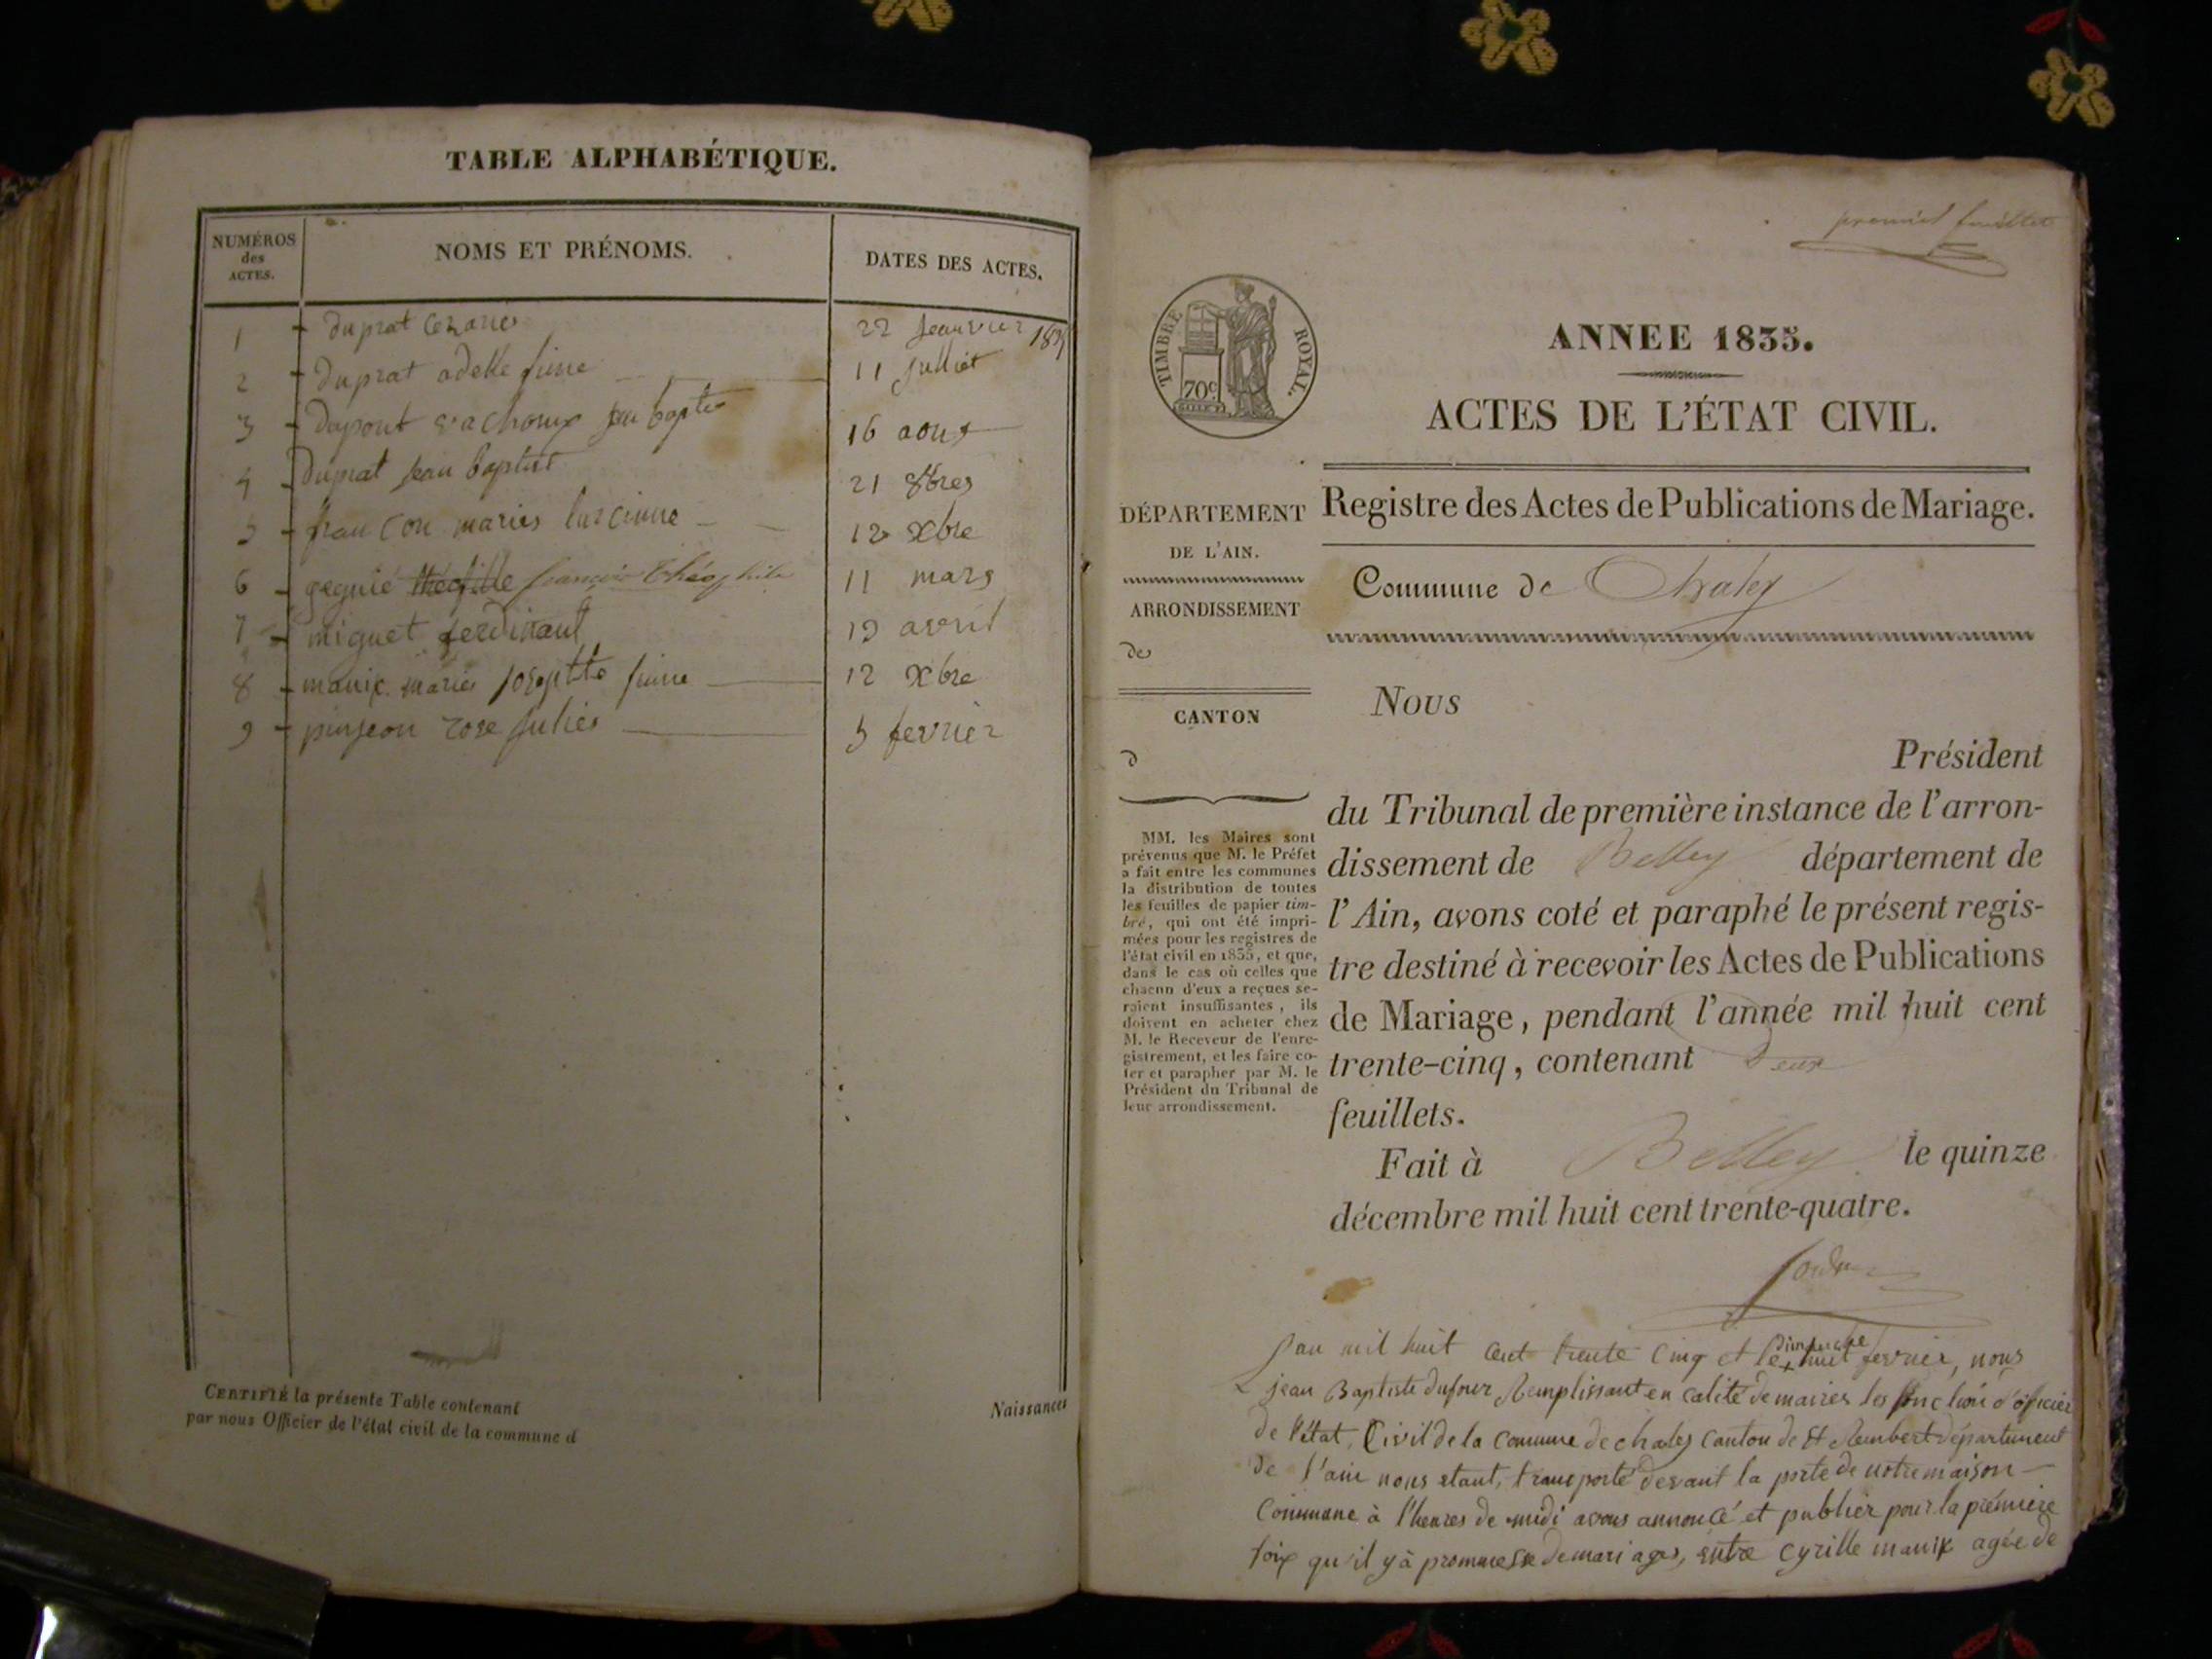 TABLE ALPHABÉTIQUE.
NUMÉROS des ACTES.
NOMS ET PRÉNOMS.
DATES DES ACTES.
1 duprat 22 1835
2 duprat adelle 11 Julliet
3 dupont jean 16 aout
4 duprat jean baptist 21 8bres
5 francon maries 12 xbre
6 gegnié théofille françois théophile 11 mars
7 miguet ferdinant 19 avril
8 manix maries 12 xbre
9 rose julies 5 fevrier
CERTIFIÉ la présente Table contenant
par nous Officier de l'état civil de la commune d
Naissances
premier feuillet
TIMBRE ROYAL.
70c
ANNEE 1835.
ACTES DE L'ÉTAT CIVIL.
Registre des Actes de Publications de Mariage.
DÉPARTEMENT
DE L'AIN.
ARRONDISSEMENT
de
CANTON
d
MM. les Maires sont
prévenus que M. le Préfet
a fait entre les communes
la distribution de toutes
les feuilles de papier tim-
bré, qui ont été impri-
mées pour les registres de
l'état civil en 1835, et que,
dans le cas où celles que
chacun d'eux a reçues se-
raient insuffisantes, ils
doivent en acheter chez
M. le Receveur de l'enre-
gistrement, et les faire co-
ter et parapher par M. le
Président du Tribunal de
leur arrondissement.
Commune de Chaley
Nous
Président
du Tribunal de première instance de l'arron-
dissement de Belley département de
l'Ain, avons coté et paraphé le présent regis-
tre destiné à recevoir les Actes de Publications
de Mariage, pendant l'année mil huit cent
trente-cinq, contenant Deux
feuillets.
Fait à Belley le quinze
décembre mil huit cent trente-quatre.
L'an mil huit cent trente cinq et le dimanche huit fevrier, nous
jean Baptiste dufour Remplissant en calité de maires les fonction d'officier
de l'état Civil de la commune de chaley canton de St Rambert département
de l'ain nous etant, transporté devant la porte de notre maison
Commune à l'heures de midi avons annoncé et publier pour la prémiere
foix qu'il y à prommesse de mariages, entre cyrille manix agée de